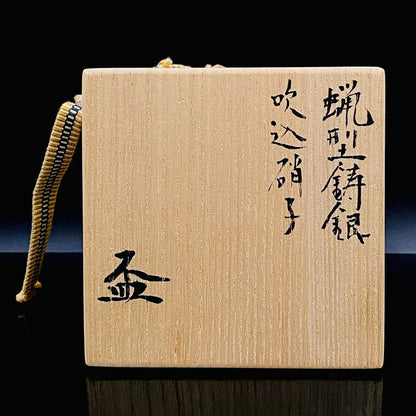 蝋型鋳銀
吹込硝子
盃